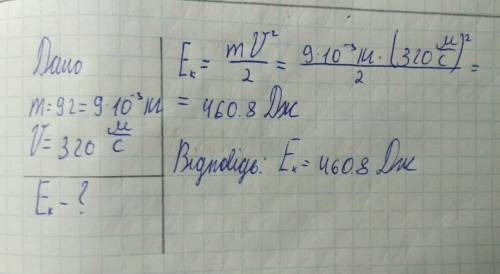 Дано
m=9г=9·10⁻³ кг
V=320 м/с
Eₖ-?
Eₖ = mV²/2 = 9·10⁻³ кг·(320 м/с)²/2 =
= 460.8 Дж
Відповідь: Eₖ=460.8 Дж